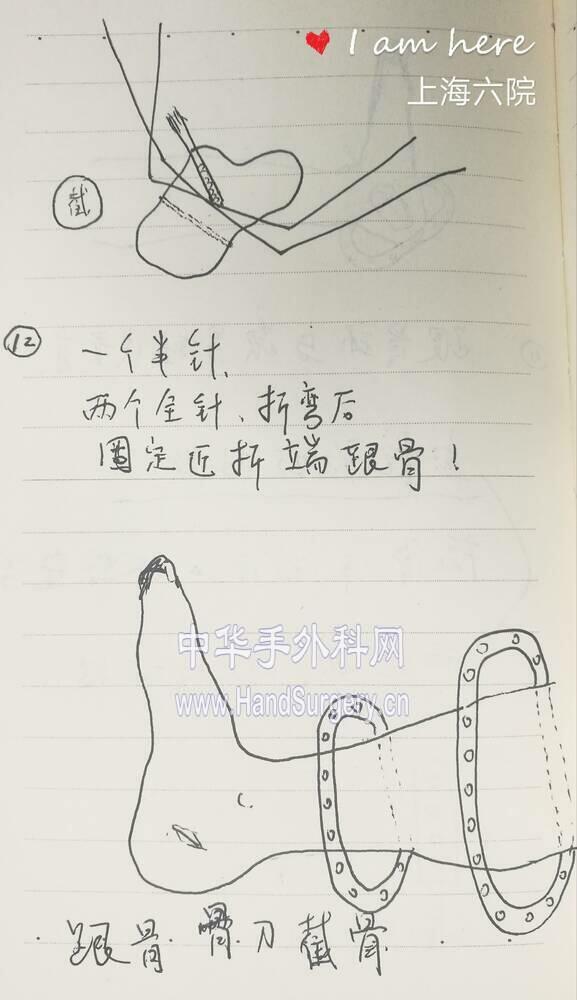 I am here
上海六院
截
12
一个半针、
两个全针、折弯后
固定近折端跟骨！
中华手外科网
www.HandSurgery.cn
跟骨 骨刀截骨